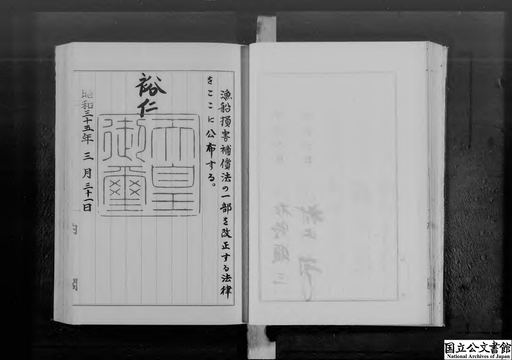 漁船損害補償法の一部を改正する法律
をここに公布する。
裕仁
天皇
御璽
昭和三十五年三月三十一日
内閣
国立公文書館
National Archives of Japan